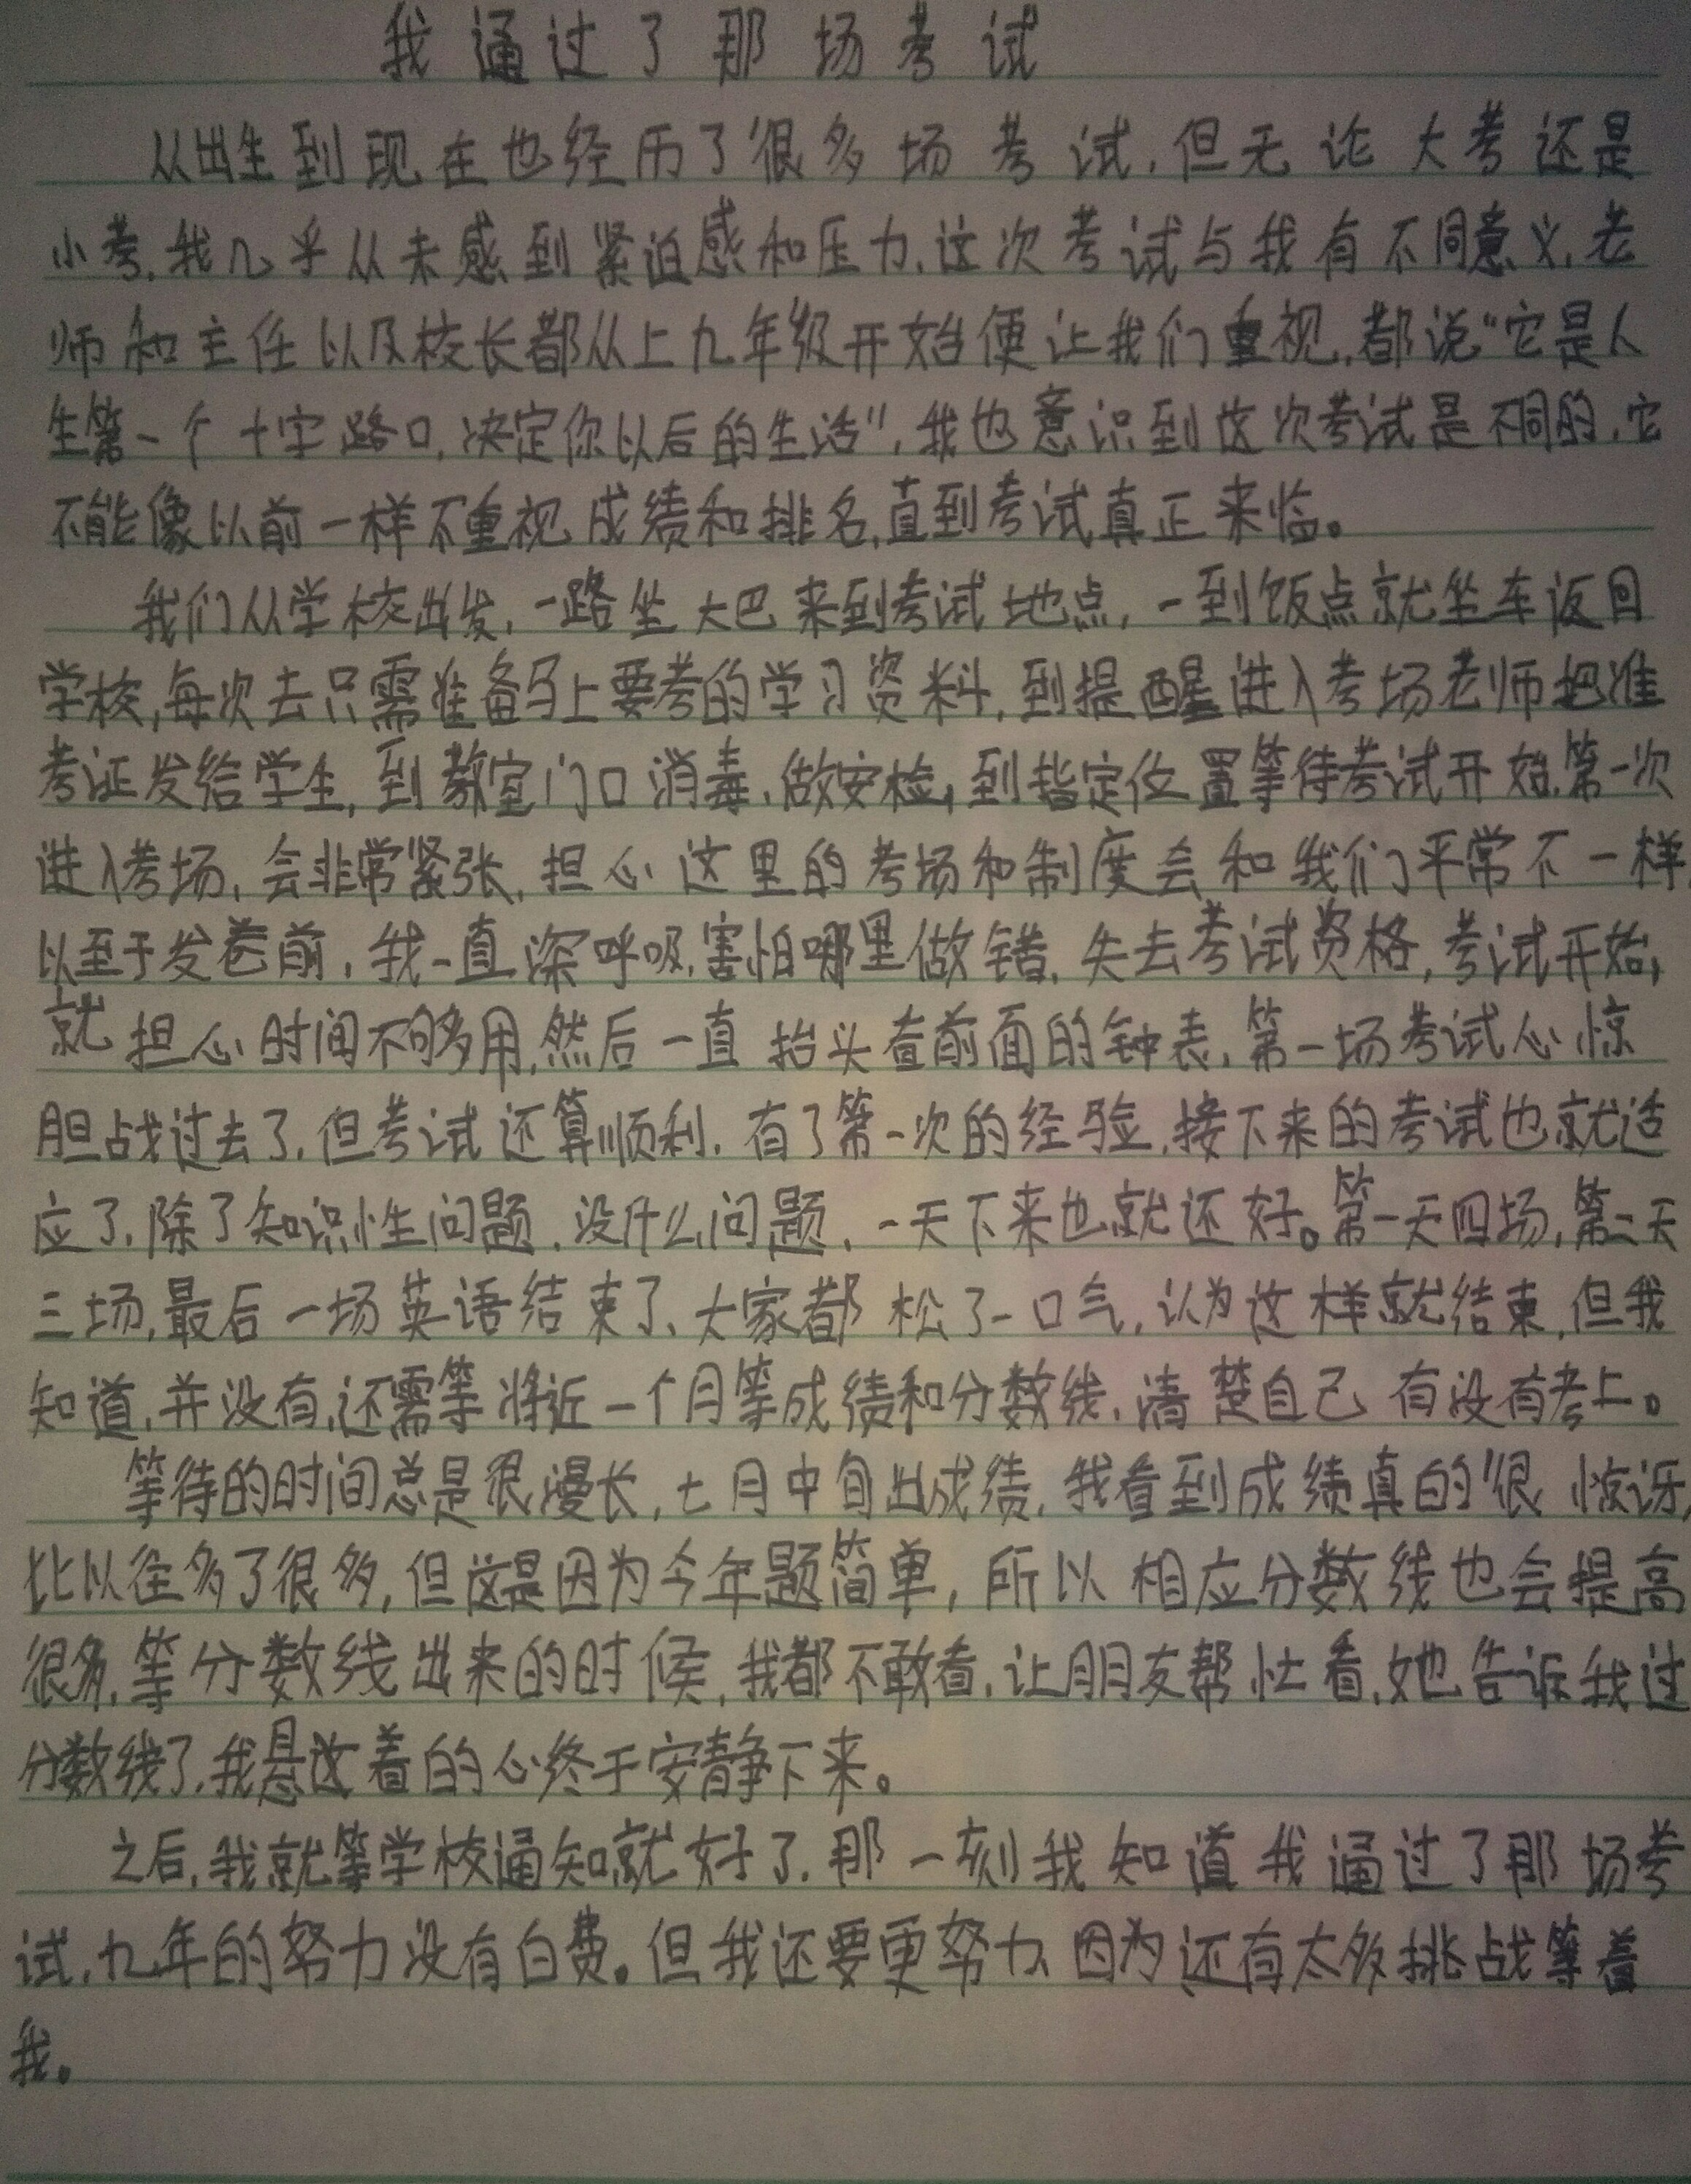 我通过了那场考试
从出生到现在也经历了很多场考试,但无论大考还是
小考,我几乎从未感到紧迫感和压力,这次考试与我有不同意义,老
师和主任以及校长都从上九年级开始便让我们重视,都说“它是人
生第一个十字路口,决定你以后的生活”,我也意识到这次考试是不同的,它
不能像以前一样不重视成绩和排名,直到考试真正来临。
我们从学校出发,一路坐大巴来到考试地点,一到饭点就坐车返回
学校,每次去只需准备马上要考的学习资料,到提醒进入考场老师把准
考证发给学生,到教室门口消毒,做安检,到指定位置等待考试开始,第一次
进入考场,会非常紧张,担心这里的考场和制度会和我们平常不一样,
以至于发卷前,我一直深呼吸,害怕哪里做错,失去考试资格,考试开始,
就担心时间不够用,然后一直抬头看前面的钟表,第一场考试心惊
胆战过去了,但考试还算顺利,有了第一次的经验,接下来的考试也就适
应了,除了知识性问题,没什么问题,一天下来也就还好。第一天四场,第二天
三场,最后一场英语结束了,大家都松了一口气,认为这样就结束,但我
知道,并没有,还需等将近一个月等成绩和分数线,清楚自己有没有考上。
等待的时间总是很漫长,七月中旬出成绩,我看到成绩真的很惊讶,
比以往多了很多,但这是因为今年题简单,所以相应分数线也会提高
很多,等分数线出来的时候,我都不敢看,让朋友帮忙看,她告诉我过
分数线了,我悬这着的心终于安静下来。
之后,我就等学校通知就好了,那一刻我知道我通过了那场考
试,九年的努力没有白费。但我还要更努力,因为还有太多挑战等着
我。